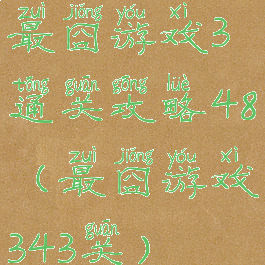 zuì jiǒng yóu xì
最囧游戏3
tōng guān gōng lüè
通关攻略48
zuì jiǒng yóu xì
(最囧游戏
guān
343关)